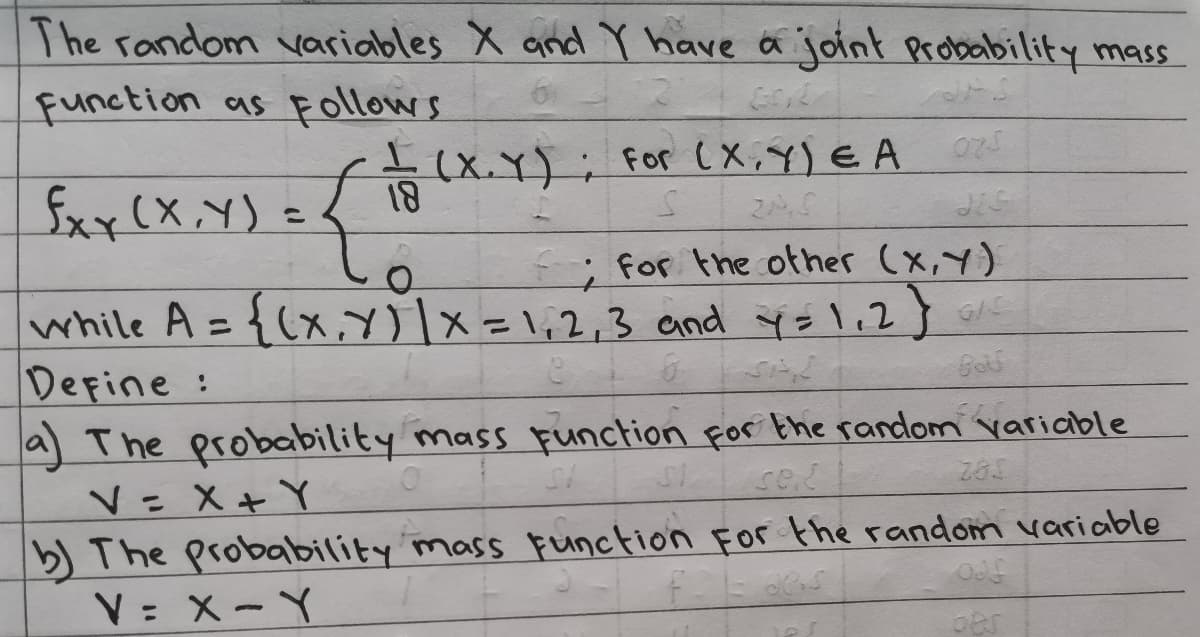 The random variables X and Y have a joint probability mass
function as follows
fxy (X,Y) = { 1/18 (X.Y) ; for (X,Y) ∈ A
0 ; for the other (X,Y)
while A = {(X,Y) | X = 1,2,3 and Y = 1,2}
Define :
a) The probability mass function for the random variable
V = X + Y
b) The probability mass function for the random variable
V = X - Y